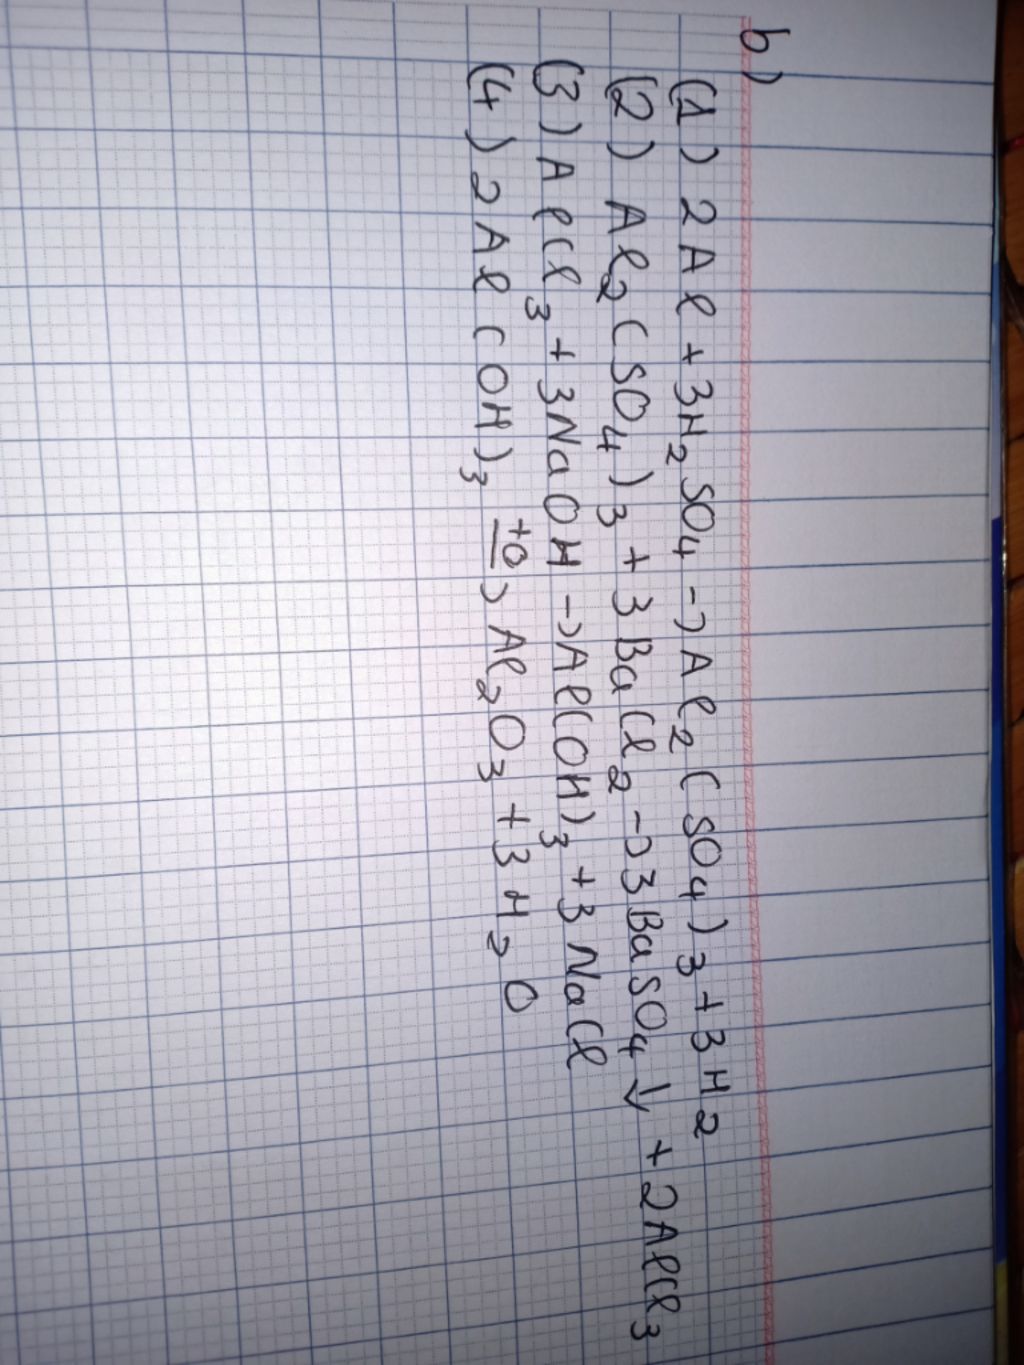 b)
(1) 2Al + 3H₂SO₄ -> Al₂(SO₄)₃ + 3H₂
(2) Al₂(SO₄)₃ + 3BaCl₂ -> 3BaSO₄↓ + 2AlCl₃
(3) AlCl₃ + 3NaOH -> Al(OH)₃ + 3NaCl
(4) 2Al(OH)₃ -t⁰-> Al₂O₃ + 3H₂O